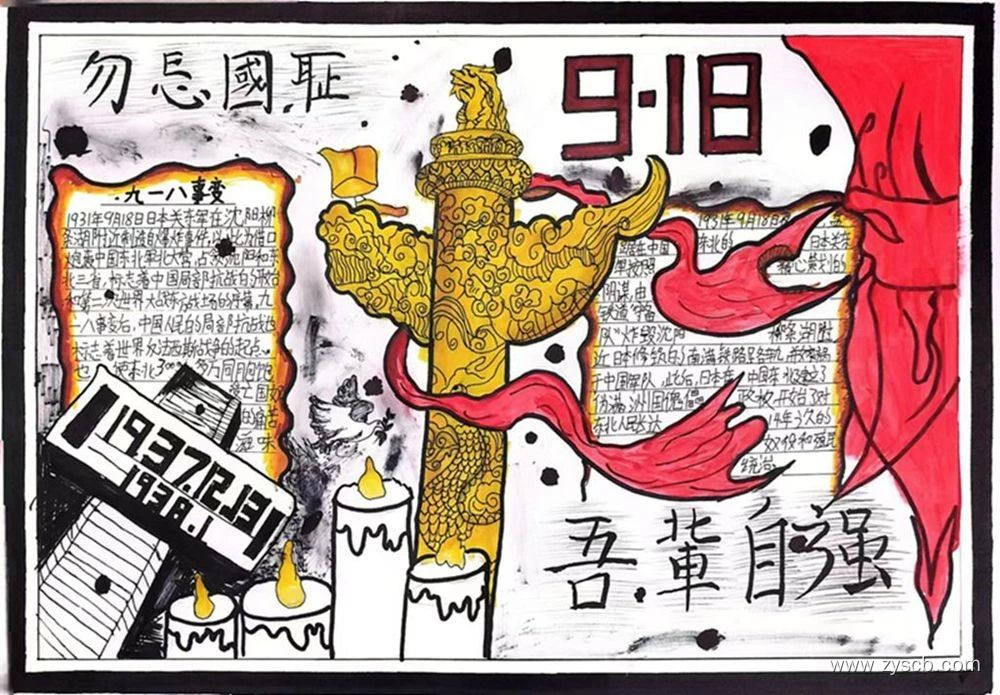 勿忘國耻
9·18
九一八事变
1931年9月18日日本关东军在沈阳柳
条湖附近制造爆炸事件,以此为借口
炮轰中国东北军北大营,占领沈阳和东
北三省,标志着中国局部抗战的开始
和第二次世界大战东方战场的序幕,九
一八事变后,中国人民的局部抗战也
标志着世界反法西斯战争的起点。
也使东北3000多万同胞饱
亡国奴
的痛苦
滋味
1937.12.13
1938.1
1931年9月18日
在中国东北的日本关东
军按照精心策划的
阴谋,由
铁道守备
队"炸毁沈阳柳条湖附
近日本修筑的南满铁路路轨,并
于中国军队,此后,日本在中国东北建立了
伪满洲国傀儡政权,开始了对
东北人民长达14年之久的
奴役和殖民
统治
吾輩自强
www.zyscb.com